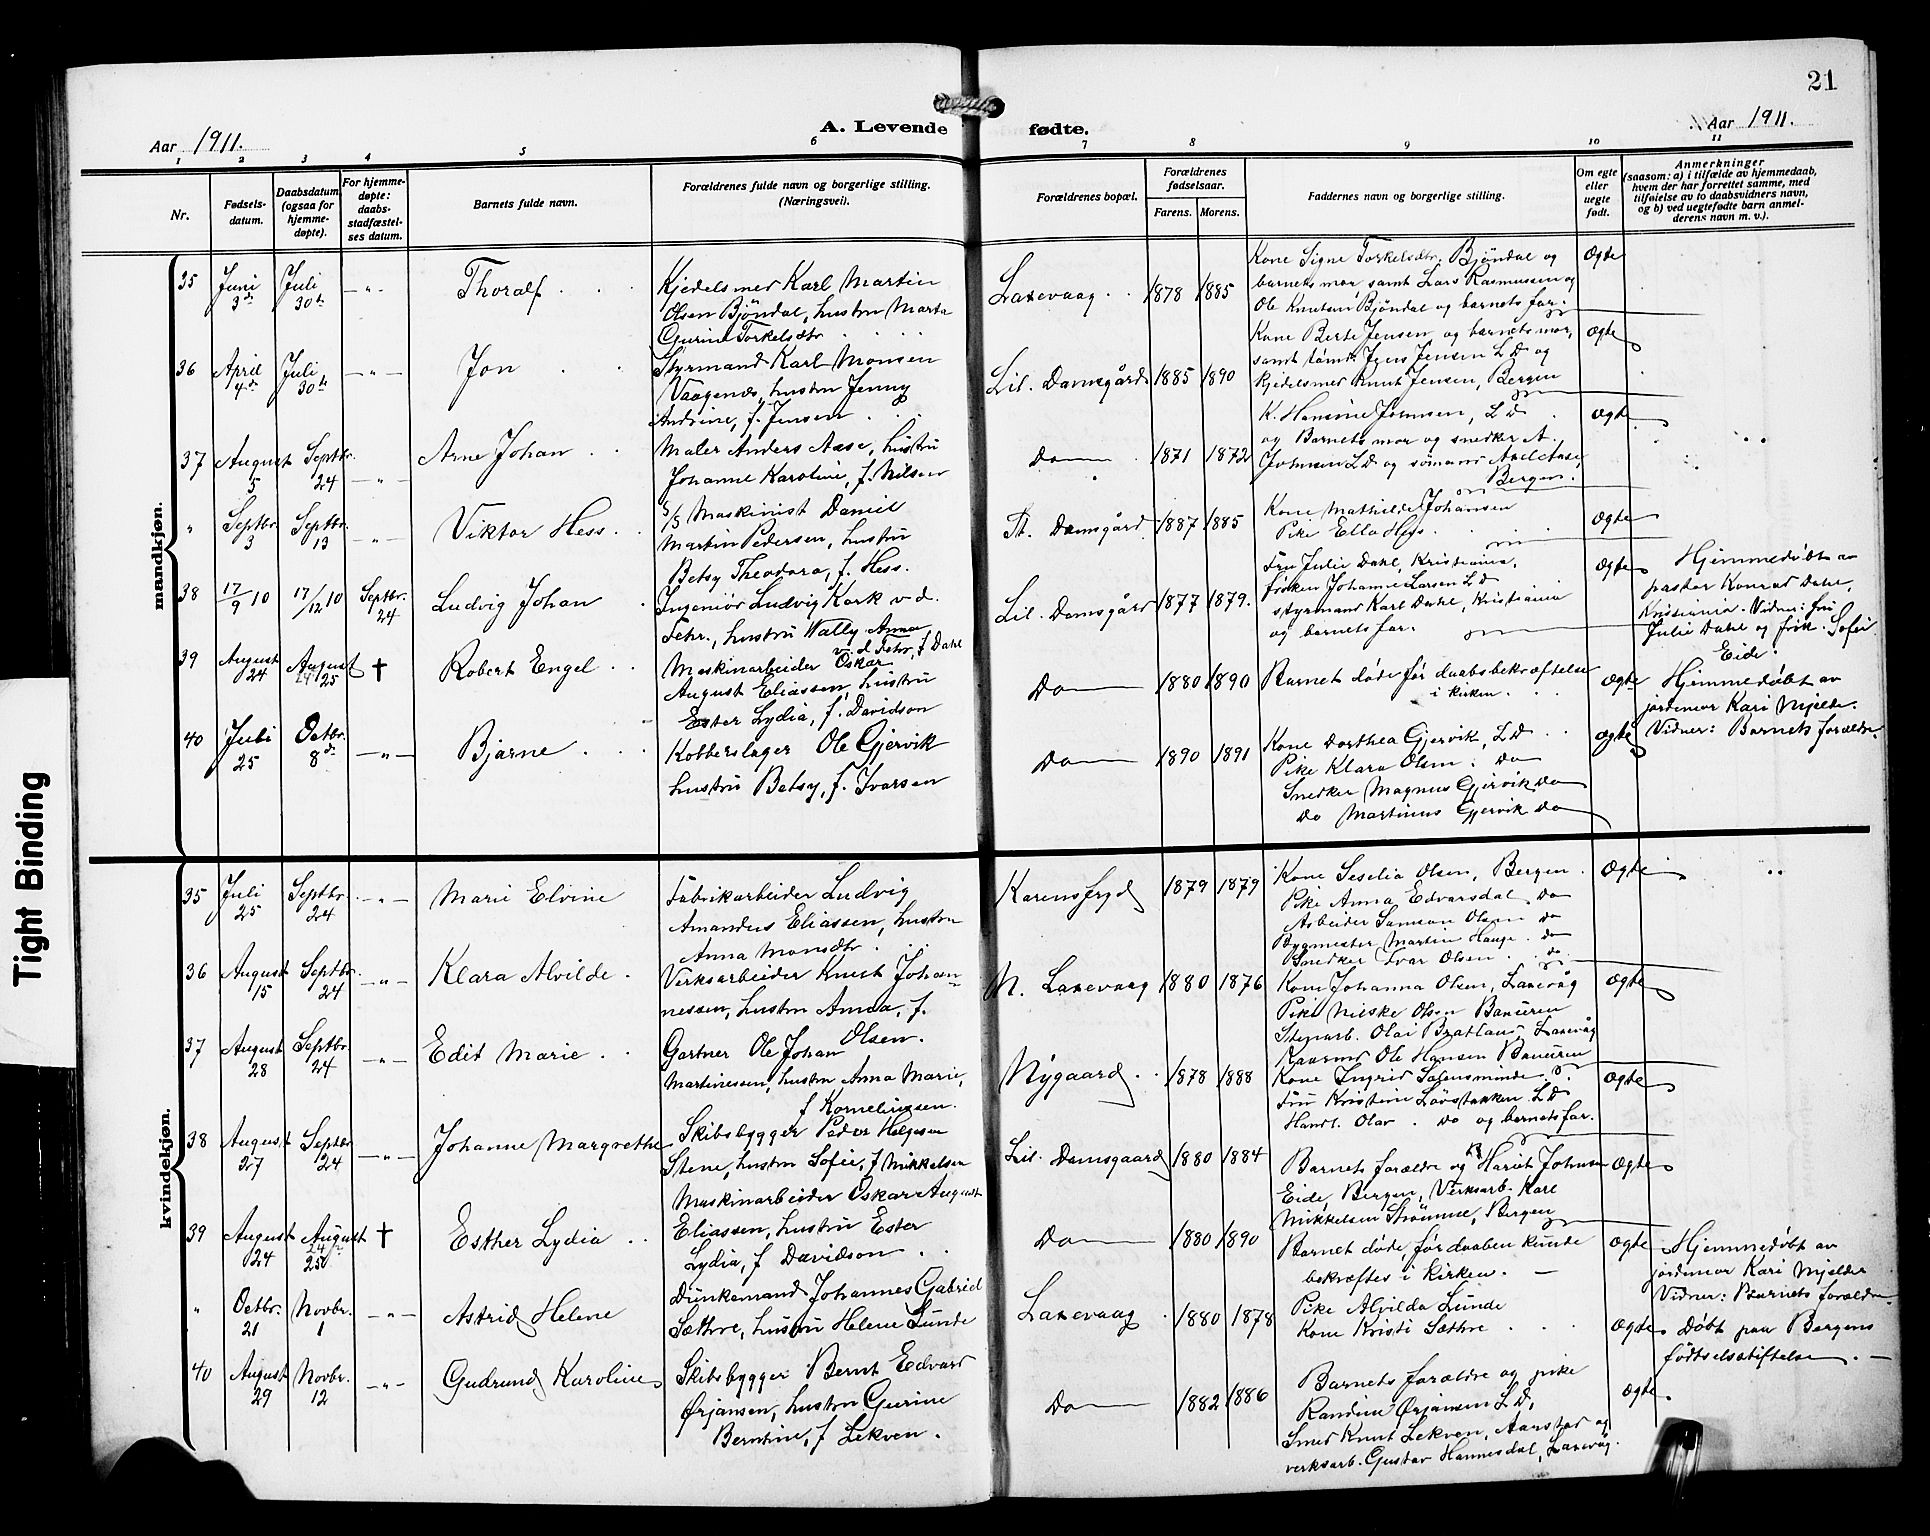 21
A. Levende fødte.
Aar 1911.
Aar 1911.
1 2 3 4 5 6 7 8 9 10 11
Nr.
Fødsels-
datum.
Daabsdatum
(ogsaa for
hjemme-
døpte).
For hjemme-
døpte:
daabs-
stadfæstel-
ses datum.
Barnets fulde navn.
Forældrenes fulde navn og borgerlige stilling.
(Næringsvei).
Forældrenes bopæl.
Forældrenes
fødselsaar.
Farens. Morens.
Faddernes navn og borgerlige stilling.
Om egte
eller
uegte
født.
Anmerkninger
(saasom: a) i tilfælde av hjemmedaab,
hvem der har forrettet samme, med
tilføielse av to daabsvidners navn,
og b) ved uegtefødte barn anmel-
derens navn m. v.).
mandkjøn.
35 Juni 3die Juli 30te —„— Thoralf
Kjedelsmed Karl Martin
Olsen Bjöndal, hustru Marta
Gurine Torkelsdtr.
Laxevaag 1878 1885
Kone Signe Torkelsdtr. Bjöndal og
barnets mor samt Lars Rasmussen og
Ole Knutsen Bjöndal og barnets far.
Ægte
36 April 4de Juli 30te —„— Jon
Styrmand Karl Monsen
Vaagenes, hustru Jenny
Andrine, f. Jensen
Lil. Damsgård 1885 1890
Kone Berte Jensen og barnets mor,
samt tömr. Jens Jensen L D og
Kjedelsmed Knut Jensen, Bergen
Ægte
37 August 5 Septbr. 24 —„— Arne Johan
Maler Anders Aase, hustru
Johanne Karoline, f. Nilsen
Do 1871 1872
K. Hansine Johnsen, L D.
og Barnets mor og snedker A.
Johnsen L D og sömand Axel Aase,
Bergen.
Ægte
„ Septbr. 3 Septbr. 13 —„— Viktor Hess
S/S Maskinist Daniel
Martin Pedersen, hustru
Betsy Theodora, f. Hess.
St. Damsgård 1887 1885
Kone Mathilde Johansen
Pike Ella Hess.
Ægte
38 17/9 10 17/12 10 Septbr. 24 Ludvig Johan
Ingeniör Ludvig Kark v d.
Fehr., hustru Wally Anna
v. d Fehr, f Dahl
Lil. Damsgård 1877 1879.
Fru Julie Dahl, Kristiania,
fröken Johanne Larsen L D
styrmand Karl Dahl, Kristiania
og barnets far.
Ægte
Hjemmedöbt av
pastor Konrad Dahl,
Kristiania. Vidner: fru
Julie Dahl og frök. Sofie
Eide.
39 August 24 August 24 25 † Robert Engel
Maskinarbeider Oskar
August Eliassen, hustru
Ester Lydia, f. Davidson
Do 1880 1890
Barnet döde för daabsbekræftelse
i kirken.
Ægte
Hjemmedöbt av
jordemor Kari Mjelde.
Vidner: Barnets forældre.
40 Juli 25 Octbr. 8de —„— Bjarne
Kobberslager Ole Gjervik
hustru Betsy, f. Ivarsen
Do 1890 1891
Kone Dorthea Gjervik, L D
Pike Klara Olsen Do
Snedker Magnus Gjervik do
do Martinus Gjervik do
Ægte
kvindekjøn.
35 Juli 25 Septbr. 24 —„— Marie Elvine
Fabrikarbeider Ludvig
Amandus Eliassen, hustru
Anna Monsdtr.
Karensfryd 1879 1879
Kone Seselia Olsen, Bergen
Pike Anna Edvarsdal do
Arbeider Samson Olsen do
Bygmester Martin Hauge do
Snedker Ivar Olsen do
Ægte
36 August 15 Septbr. 24 —„— Klara Alvilde
Verksarbeider Knut Johan-
nessen, hustru Anna, f.
Olsen.
M. Laxevaag 1880 1876
Kone Johanna Olsen, Laxevåg
Pike Nilske Olsen
Stenarb. Olai Bratland Laxevåg
Ole Hansen
Ægte
37 August 28 Septbr. 24 —„— Edit Marie
Gartner Ole Johan
Martinesen, hustru Anna Marie,
f Korneliussen.
Nygaard 1878 1888
Kone Ingrid
Fru Kristine Lövstakken L D
Handl. Olav do og barnets far.
Ægte
38 August 27 Septbr. 24 —„— Johanne Margrethe
Skibsbygger Peder Helgesen
Stene, hustru Sofie, f Mikkelsen
Lil. Damsgaard 1880 1884
Barnets forældre og Harist Johnsen
Eide, Bergen, Verksarb. Karl
Mikkelsen Strömme, Bergen
Ægte
39 August 24 August 24 25 † Esther Lydia
Maskinarbeider Oskar August
Eliassen, hustru Ester
Lydia, f Davidson
Do 1880 1890
Barnet döde, för daaben kunde
bekræftes i kirken.
Ægte
Hjemmedöbt av
jordemor Kari Mjelde
Vidner: Barnets forældre.
„ Octbr. 21 Novbr. 1 —„— Astrid Helene
Dunkemand Johannes Gabriel
Sæthre, hustru Helene Lunde
Laxevaag 1880 1878
Pike Alvilda Lunde
Kone Kristi Sæthre
Ægte
Döbt paa Bergens
födtselsstiftelse.
40 August 29 Novbr. 12 —„— Gudrund Karoline
Skibsbygger Bernt Edvard
Ørjansen, hustru Gurine
Berntine, f Lekven.
Do 1882 1886
Barnets forældre og pike
Randine Ørjansen L D,
Smed Knut Lekven, Aarstad og
verksarb. Gustav Hannesdal, Laxevåg.
Ægte.
Tight Binding